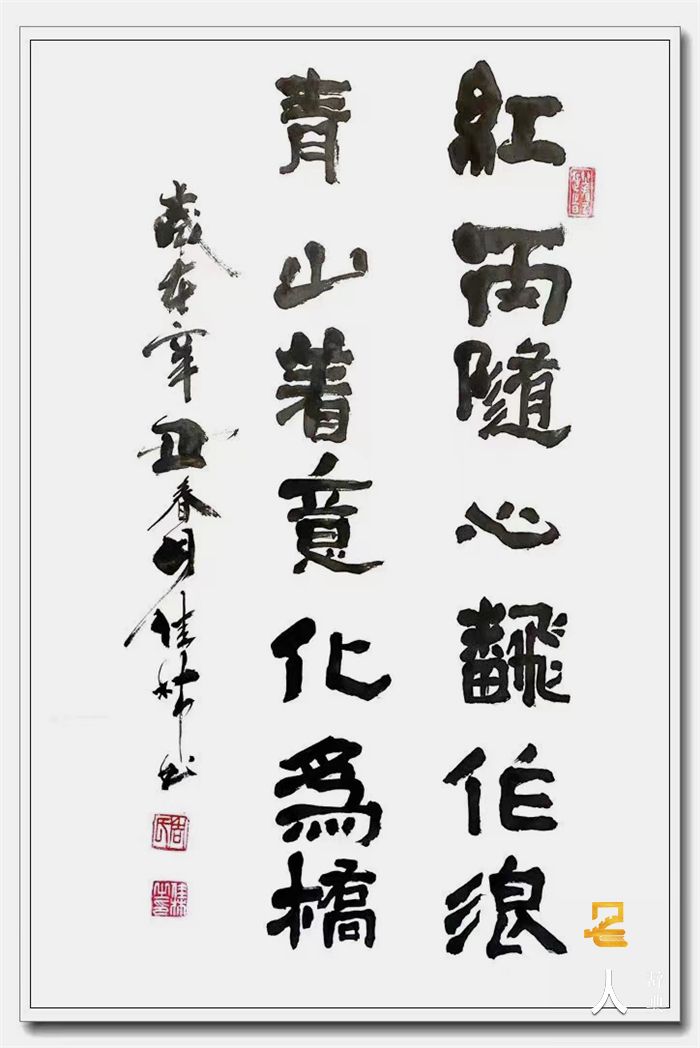 紅雨隨心飜作浪
青山着意化為橋
歲在辛丑春月佳林书
人